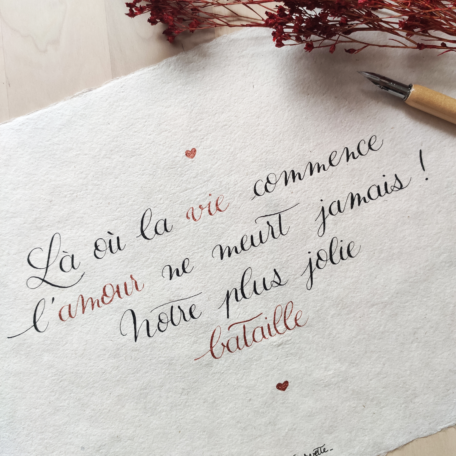 Là où la vie commence
l'amour ne meurt jamais !
Notre plus jolie
bataille